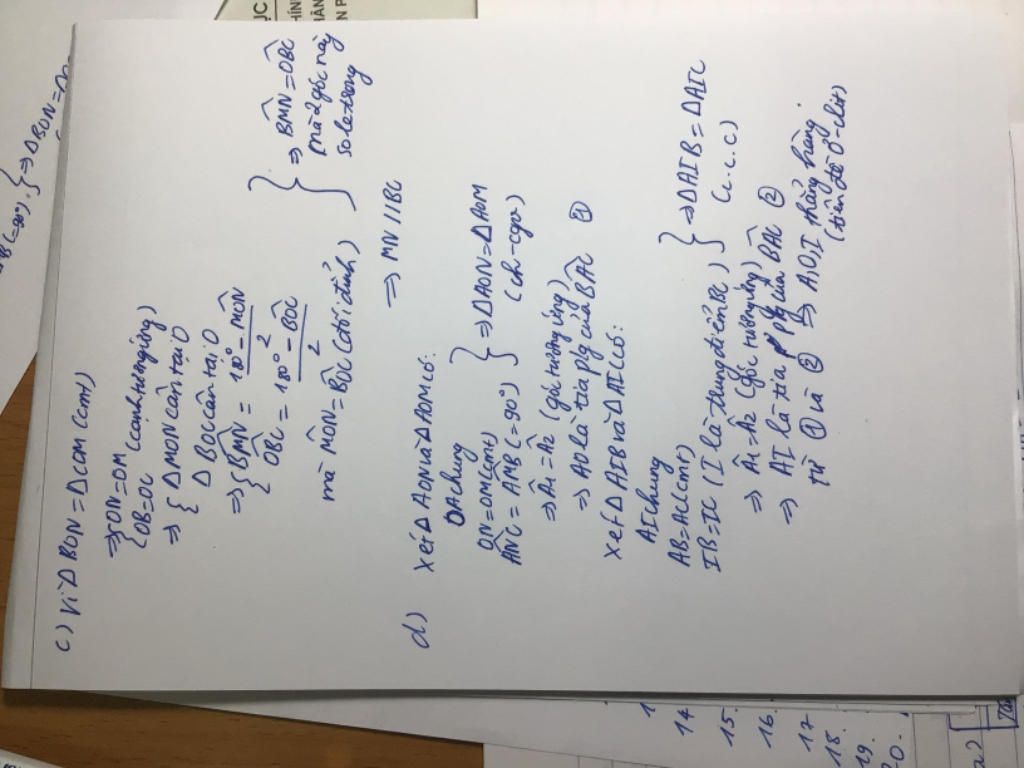 c) Vì Δ BON = Δ COM (cmt)
⇒ { ON = OM
OB = OC (cạnh tương ứng)
⇒ { Δ MON cân tại O
Δ BOC cân tại O
⇒ { BMN = 180° - MON / 2
OBC = 180° - BOC / 2
mà MON = BOC (đối đỉnh)
} ⇒ BMN = OBC
mà 2 góc này
so le trong
⇒ MN // BC
d) Xét Δ AON và Δ AOM có:
OA chung
ON = OM (cmt)
ANC = AMB (= 90°)
} ⇒ Δ AON = Δ AOM
(ch - cgv)
⇒ A1 = A2 (góc tương ứng)
⇒ AO là tia p/g của BAC ①
Xét Δ AIB và Δ AIC có:
AI chung
AB = AC (cmt)
IB = IC (I là trung điểm BC)
} ⇒ Δ AIB = Δ AIC
(c.c.c)
⇒ A1 = A2 (góc tương ứng)
⇒ AI là tia p/g của BAC ②
từ ① và ② ⇒ A, O, I thẳng hàng.
(tiên đề Ơ-clit)
(=90°). } ⇒ Δ BON = Δ
14
15.
16.
17
18.
19.
a)